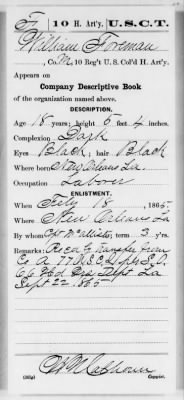 F 10 H. Art'y. U.S.C.T.
William Foreman
, Co. M, 10 Reg't U. S. Col'd H. Art'y.
Appears on
Company Descriptive Book
of the organization named above.
DESCRIPTION.
Age 18 years; height 5 feet 4 inches.
Complexion Dark
Eyes Black; hair Black
Where born New Orleans La.
Occupation Labour
ENLISTMENT.
When July 18, 1865
Where New Orleans La
By whom Capt McAllister, term 3 y'rs.
Remarks: Rec'd by transfer from
Co A. 77 U.S.C.I. per S.O.
66 Hd Qrs Dept La
Sept 22 1865
Calhoun
Copyist.